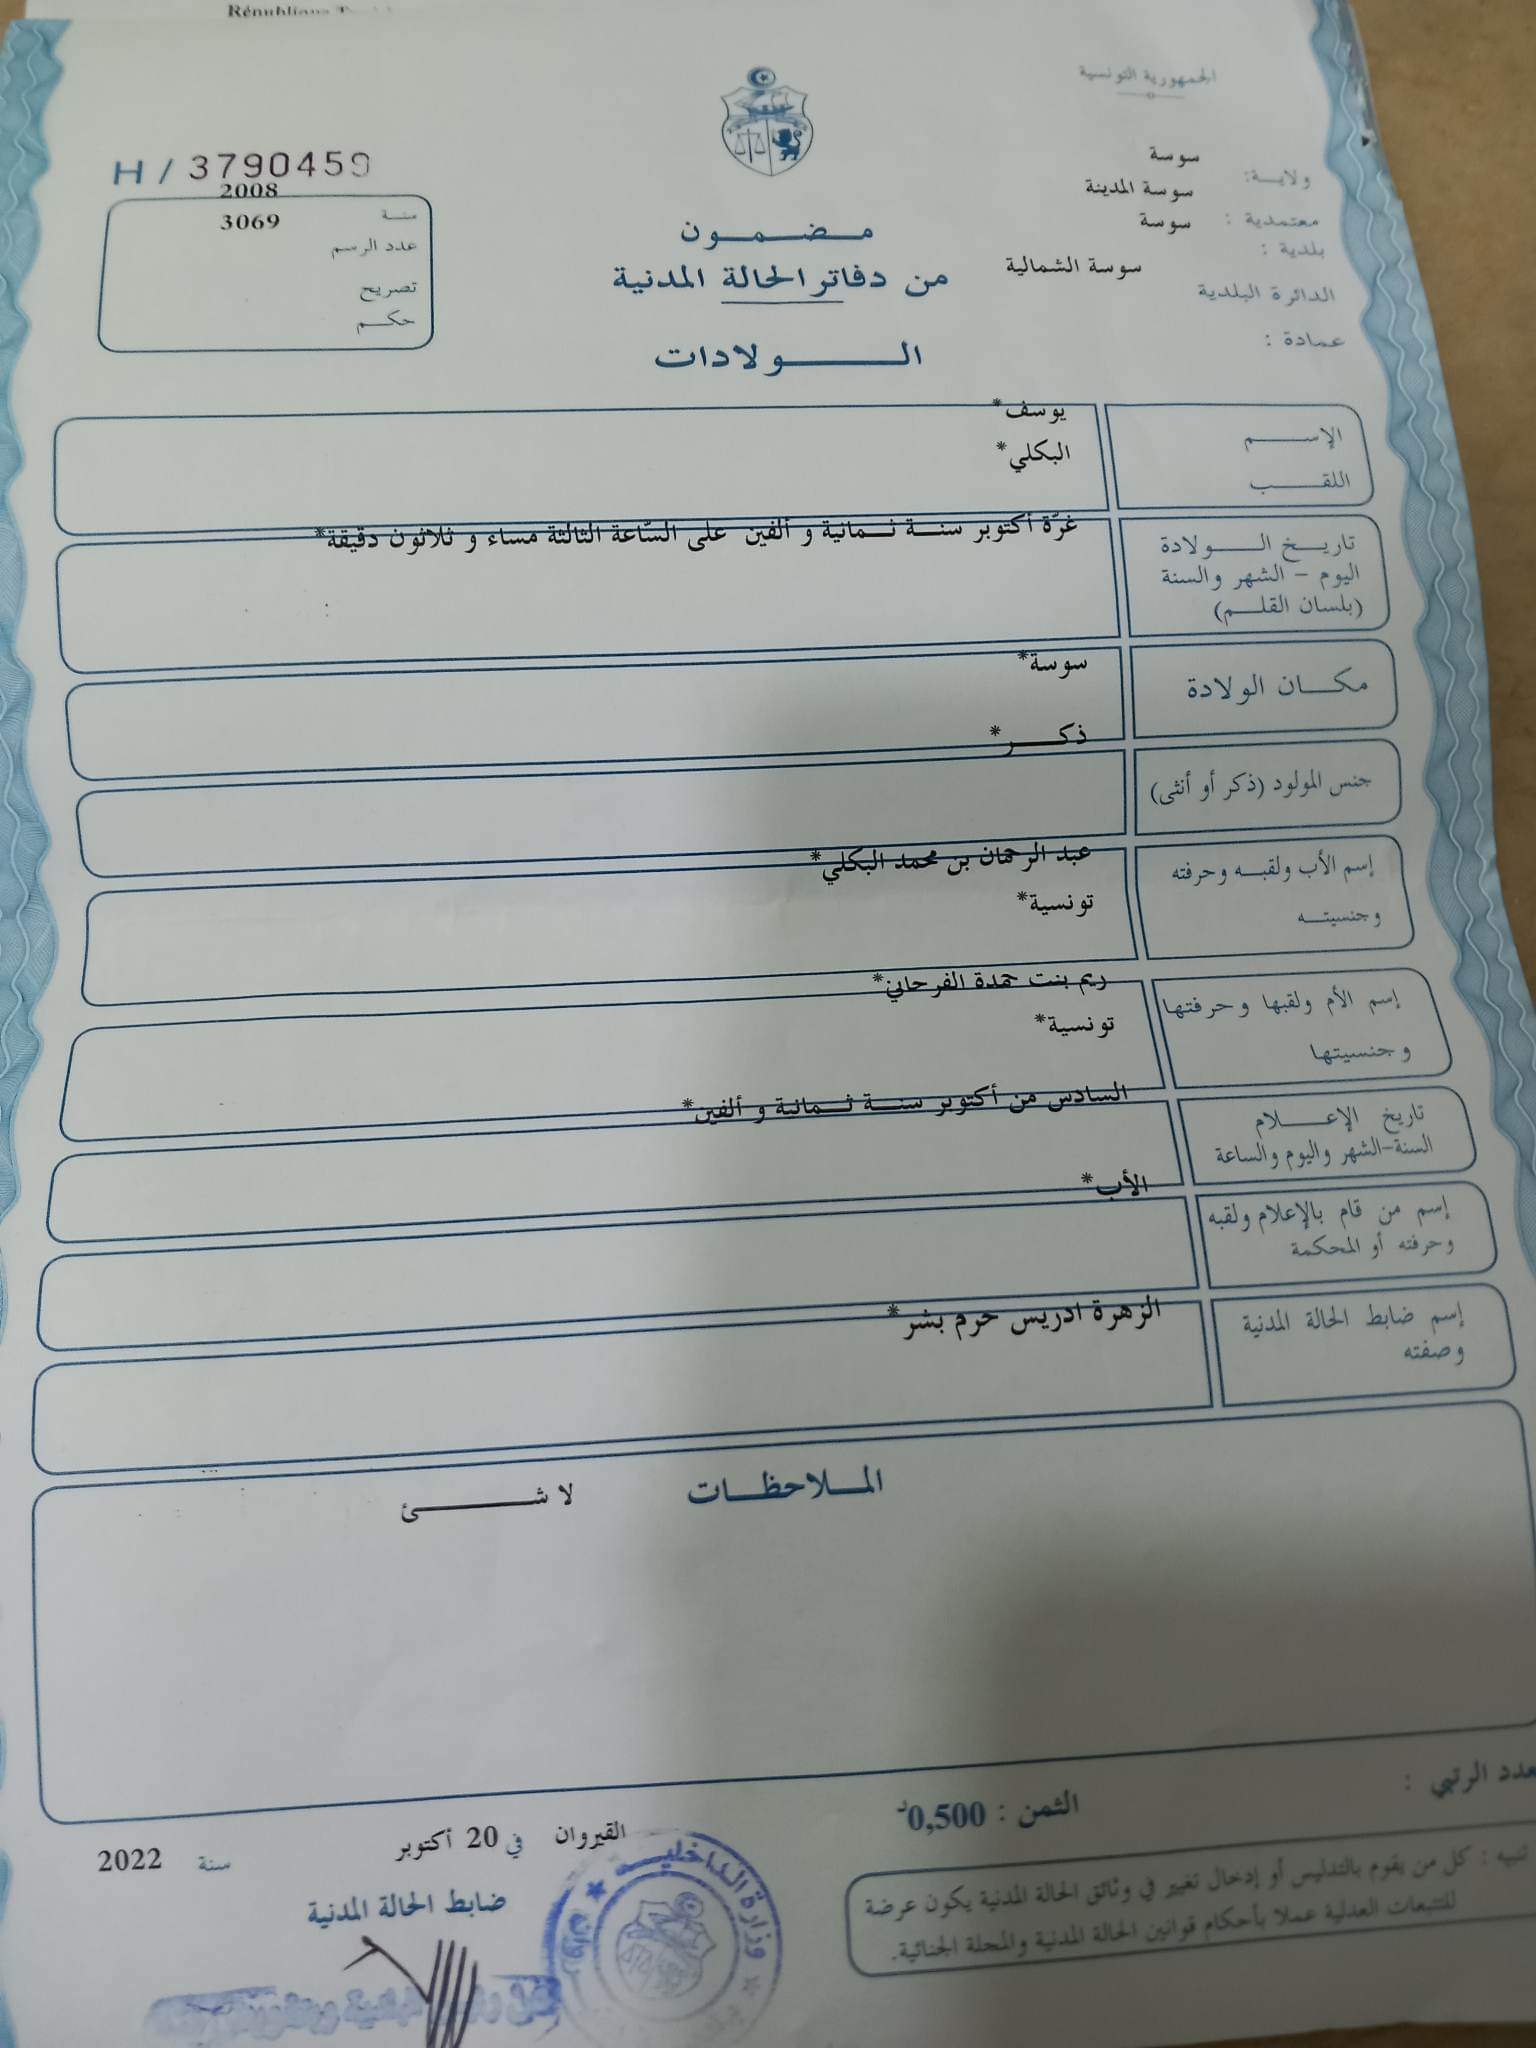 République
الجمهورية التونسية
ولاية: سوسة
معتمدية: سوسة المدينة
بلدية: سوسة
الدائرة البلدية سوسة الشمالية
عمادة:
H / 3790459
سنة 2008
عدد الرسم 3069
تصريح
حكم
مضمون
من دفاتر الحالة المدنية
الولادات
الإسم يوسف*
اللقب البكلي*
تاريخ الولادة غرّة أكتوبر سنة ثمانية و ألفين على السّاعة الثالثة مساء و ثلاثون دقيقة*
اليوم - الشهر والسنة
(بلسان القلم)
مكان الولادة سوسة*
جنس المولود (ذكر أو أنثى) ذكر*
إسم الأب ولقبه وحرفته عبد الرحمان بن محمد البكلي*
وجنسيته تونسية*
إسم الأم ولقبها وحرفتها ريم بنت حمدة الفرحاني*
وجنسيتها تونسية*
تاريخ الإعلام السادس من أكتوبر سنة ثمانية و ألفين*
السنة-الشهر واليوم والساعة
إسم من قام بالإعلام ولقبه الأب*
وحرفته أو المحكمة
إسم ضابط الحالة المدنية الزهرة ادريس حرم بشر*
وصفته
الملاحظات لا شئ
عدد الرتبي :
الثمن : 0,500د
القيروان في 20 أكتوبر سنة 2022
ضابط الحالة المدنية
تنبيه : كل من يقوم بالتدليس أو إدخال تغيير في وثائق الحالة المدنية يكون عرضة
للتتبعات العدلية عملا بأحكام قوانين الحالة المدنية والمجلة الجنائية.
وزارة الداخلية